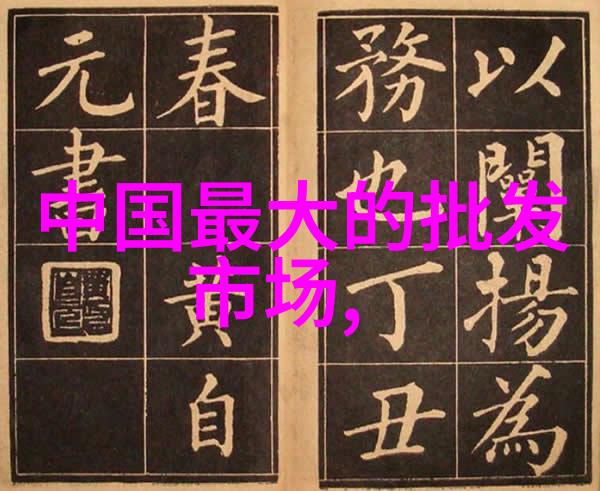 中国最大的批发
市场,
以闡揚為
務也丁丑
春黃自
元書